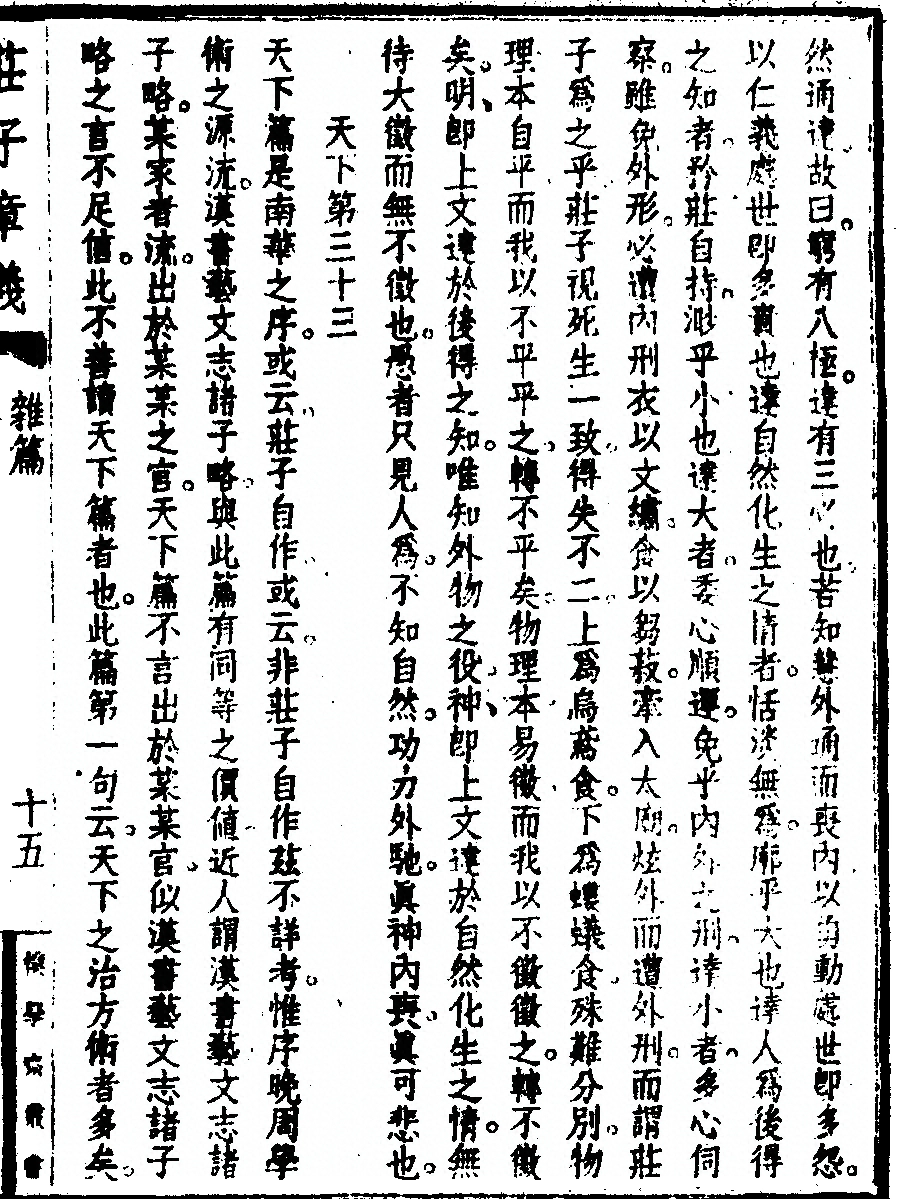 然通達故曰。窮有八極。達有三必也若知慧外通而喪內以自動處世即多怨。
以仁義處世即多責也達自然化生之情者。恬淡無爲。廓乎大也達人爲後得
之知者。矜莊自持。渺乎小也達大者。委心順運。免乎內外之刑、達小者。多心伺
察。雖免外形。必遭內刑衣以文繡。食以芻菽。牽入太廟。炫外而遭外刑。而謂莊
子爲之乎莊子視死生一致。得失不二。上爲烏鳶食。下爲螻蟻食殊難分別。物
理本自平而我以不平平之、轉不平矣。物理本易徵而我以不徵徵之。轉不徵
矣。明、即上文達於後得之知。唯知外物之役、神、即上文達於自然化生之情。無
待大徵而無不徵也。愚者只見人爲。不知自然。功力外馳。眞神內喪。眞可悲也。
天下第三十三
天下篇是南華之序。或云莊子自作。或云。非莊子自作茲不詳考。惟序晚周學
術之源流。漢書藝文志諸子略。與此篇有同等之價値。近人謂漢書藝文志諸
子略。某家者流。出於某某之官。天下篇不言出於某某官。似漢書藝文志諸子
略之言不足信。此不善讀天下篇者也。此篇第一句云。天下之治方術者多矣。
莊子章義
雜篇
十五
樸學齋叢書